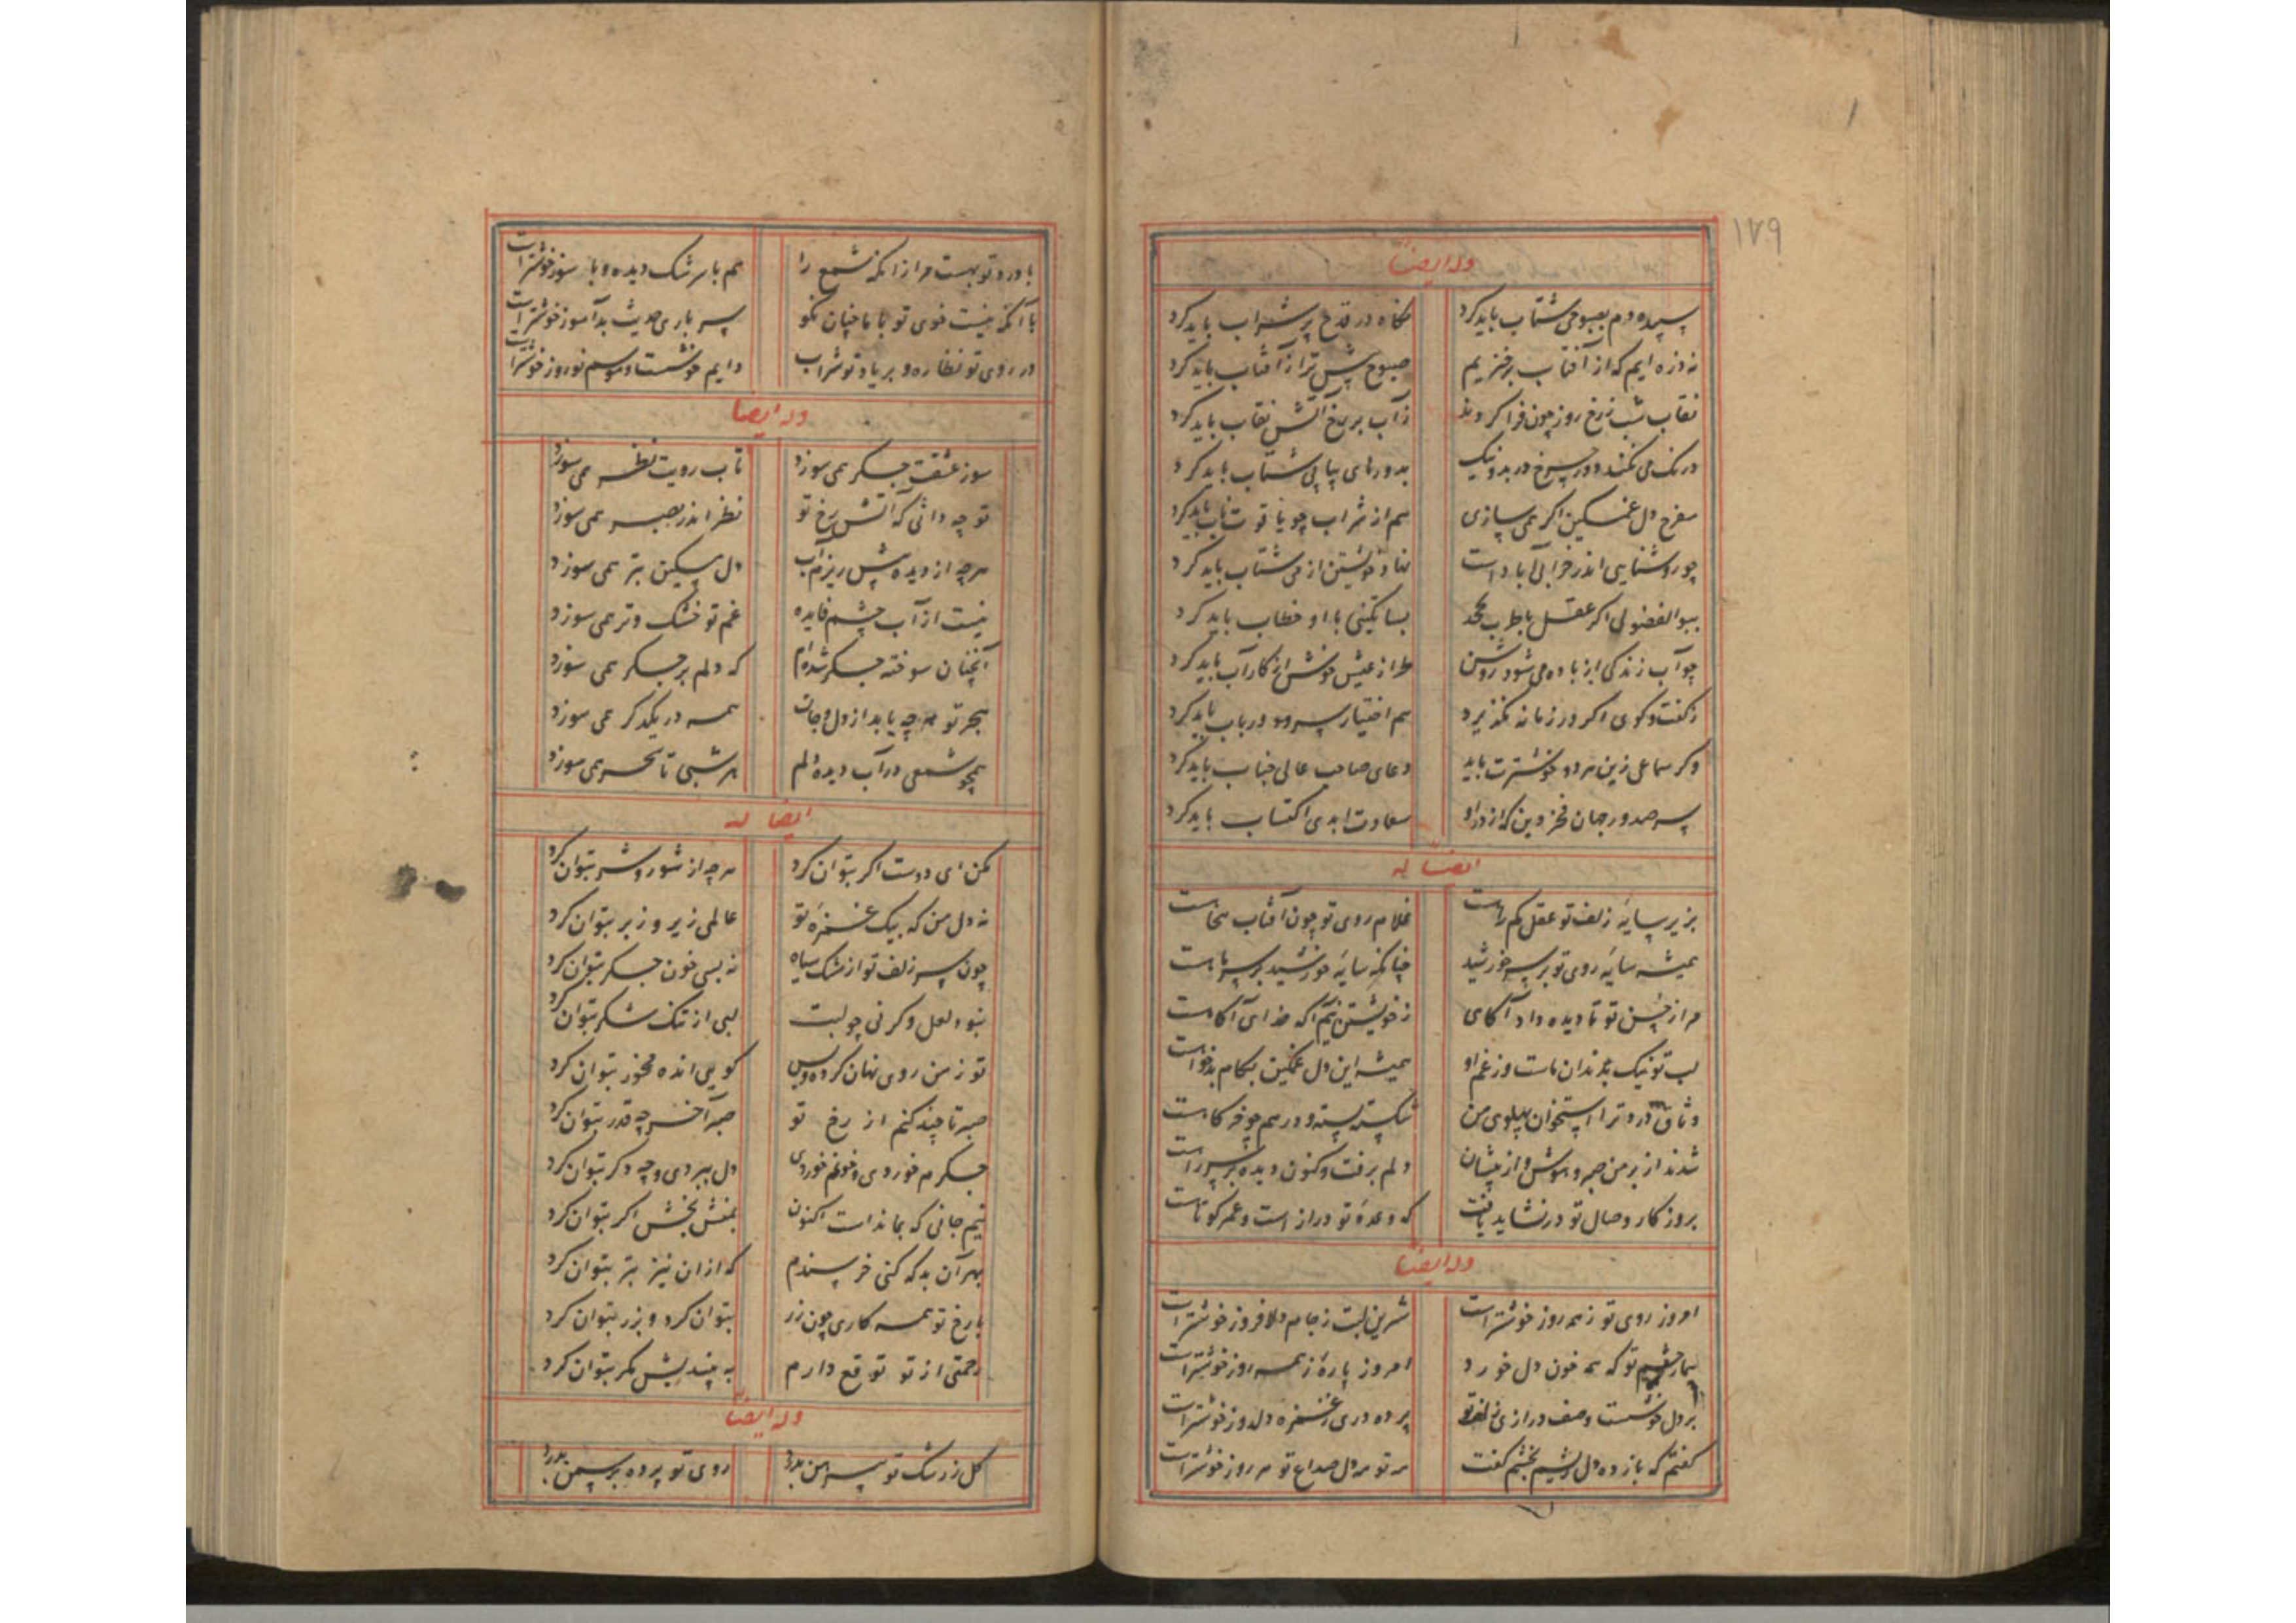 ۱۷۹
وله ایضاً
سپیده دم بصبوحی شتاب باید کرد نگاه در قدح پر شراب باید کرد
نه ذره ایم که از آفتاب برخیزیم صبوح پیش تر از آفتاب باید کرد
نقاب شب ز رخ روز چون فرا کردند ز آب بر رخ آتش نقاب باید کرد
درنک می نکند دور چرخ در بد و نیک بدورهای پیاپی شتاب باید کرد
مفرح دل غمکین اکر همی سازی هم از شراب چو یاقوت ناب باید کرد
چو روشنایی اندر خرابی آبادست نهاد خویشتن از می باید کرد
ببوالفضولی اکر عقل با طرب بیکسی با او خطاب باید کرد
چو آب زندکی از باده می شود روشن طراز عیش خوش از کار آب باید کرد
ز کفت و کوی اکر در زمانه نکذیرد هم اختیار سرود و رباب باید کرد
وکر سماعی زین هر دو خوشترت باید دعای صاحب عالی جناب باید کرد
سپهر صدور جهان فخر دین که از در او سعادت ابدی اکتساب باید کرد
ایضاً له
بزیر سایه زلف تو عقل کم راهست غلام روی تو چون آفتاب پنجاهست
همیشه سایه روی تو بر سر خورشید چنانکه سایه خورشید بر سر ماهست
مرا ز حسن تو تا دیده داد آکاهی ز خویشتن نیم آکه خدای آکاهست
لب تو نیک بدندان ماست وز غم او همیشه این دل غمکین بکام بدخواهست
وثاق درد ترا استخوان پهلوی من شکسته بسته و درهم چو خرکاهست
شدند از بر من صبر و هوش و از پیشان دلم برفت و کنون دیده بر سر راهست
بروزکار وصال تو در نشاید یافت که وعده تو درازست و عمر کوتاهست
وله ایضاً
امروز روی تو ز همه روز خوشترست شیرین لبت ز جام دلافروز خوشترست
بیمار چشم تو که همه خون دل خورد امروز پاره ز همه روز خوشترست
بر دل خوشست وصف درازی زلف تو پرده دری غمزه دلدوز خوشترست
کفتم که بازده دل ریشم بخشم کفت هر تو مر دل صداع تو هر روز خوشترست
با درد تو بهست مرا زانکه شمع را هم با سرشک دیده و با سوز خوشترست
با آنکه نیست خوی تو با ما چنان نکو سر باری حدیث بدآموز خوشترست
در روی تو نظاره و بر یاد تو شراب دایم خوشست و موسم نوروز خوشترست
وله ایضا
سوز عشقت جکر همی سوزد تاب رویت نظر همی سوزد
تو چه دانی که آتش رخ تو نظر اندر بصر همی سوزد
هرچه از دیده بیش ریزم آب دل مسکین بتر همی سوزد
نیست از آب چشم فایده غم تو خشک و تر همی سوزد
آنچنان سوخته جکر شده ام که دلم بر جکر همی سوزد
هجر تو هرچه یابد از دل و جان همه در یکدکر همی سوزد
همچو شمعی در آب دیده دلم هر شبی تا سحر همی سوزد
ایضا له
مکن ای دوست اکر بتوان کرد هرچه از شور و شر بتوان کرد
نه دل من که بیک غمزه تو عالمی زیر و زبر بتوان کرد
چون سر زلف تو از مشک سیاه نه بسی خون جکر بتوان کرد
نبود لعل وکر نی چو لبت لبی از تنک شکر بتوان کرد
تو ز من روی نهان کرده و بس کویی انده مخور بتوان کرد
صبر تا چند کنم از رخ تو صبر آخر چه قدر بتوان کرد
جکرم خوردی و خونم خوردی دل ببردی و چه دکر بتوان کرد
نیم جانی که بماندست اکنون بمنش بخش اکر بتوان کرد
بهر آن بد که کنی خرسندم که ازان نیز بتر بتوان کرد
با رخ تو همه کاری چون زر بتوان کرد و بزر بتوان کرد
رحمتی از تو توقع دارم به چندیش مکر بتوان کرد
وله ایضاً
کل ز رشک تو پیرهن بدرد روی تو پرده سمن بدرد